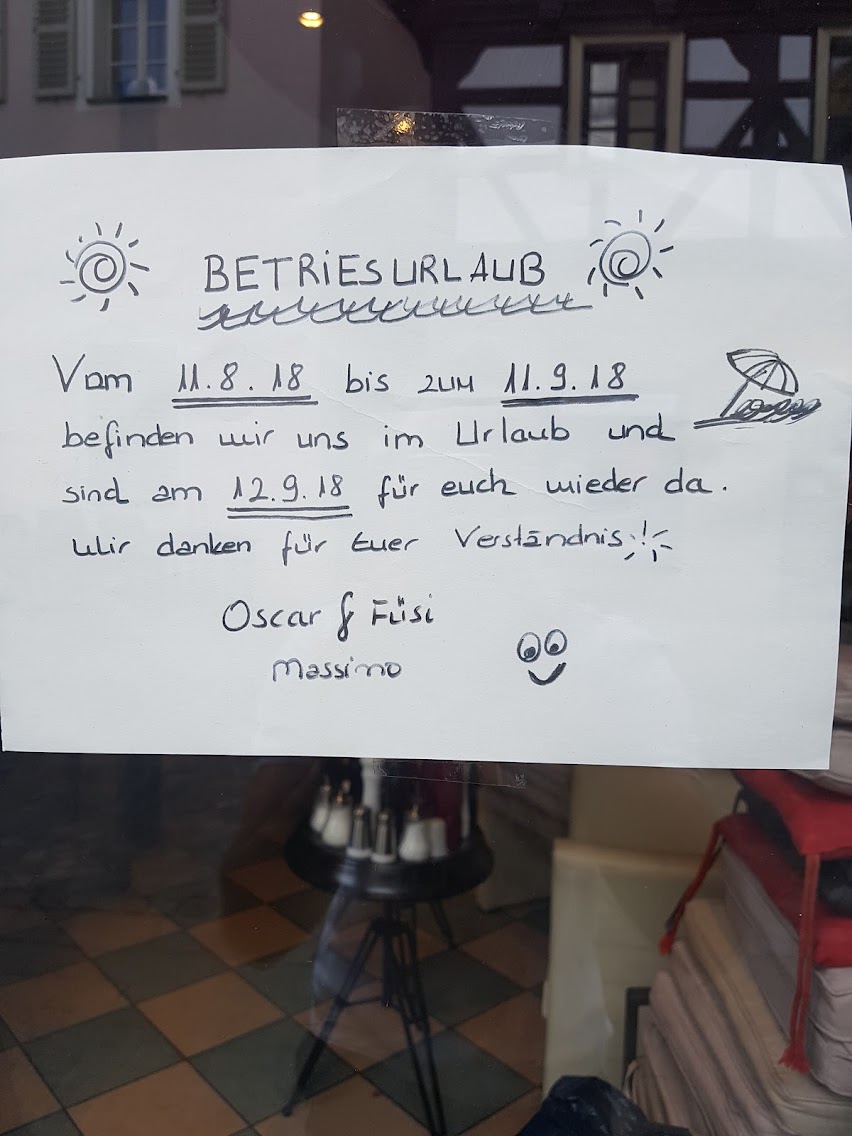 BETRIESURLAUB
Vom 11.8.18 bis zum 11.9.18
befinden wir uns im Urlaub und
sind am 12.9.18 für euch wieder da.
Wir danken für Euer Verständnis!
Oscar & Füsi
Massimo